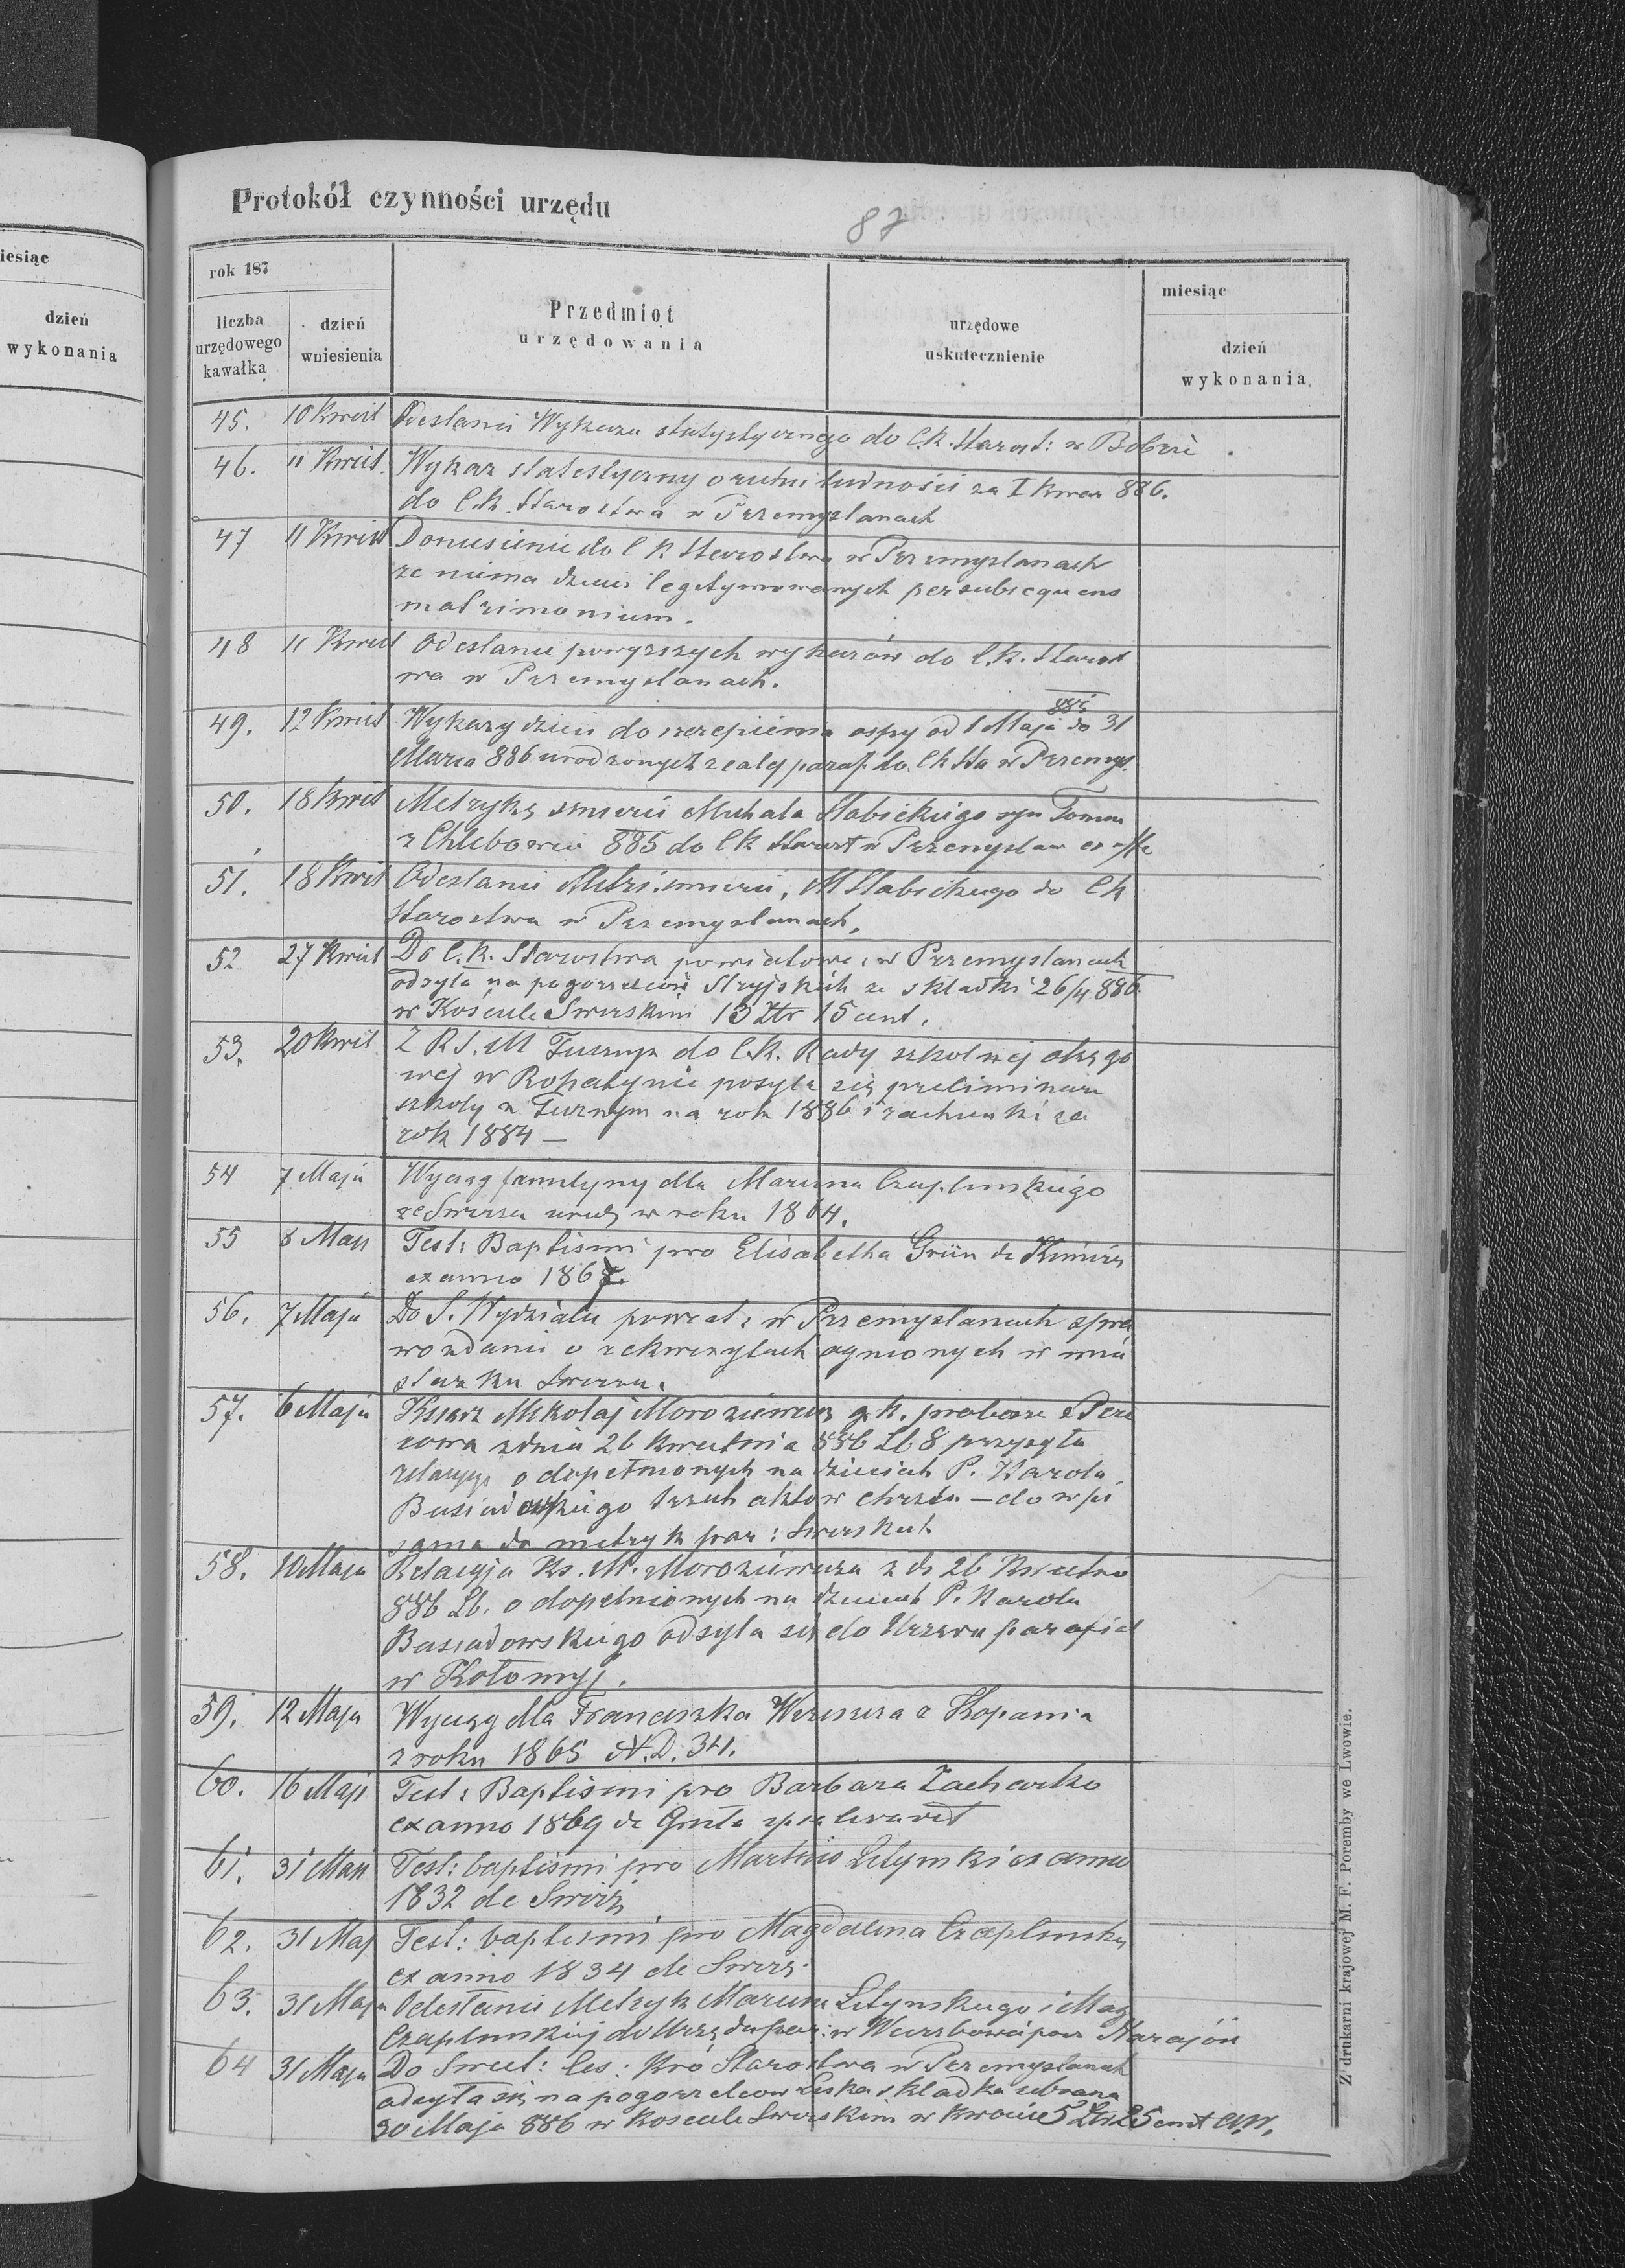 iesiąc
dzień
wykonania
Protokół czynności urzędu
87
rok 187
liczba
urzędowego
kawałka
dzień
wniesienia
Przedmiot
urzędowania
urzędowe
uskutecznienie
miesiąc
dzień
wykonania
45. 10 Kwiet Odesłanie Wykazu statystycznego do C.K. Starost: w Bobrce
46. 11 Kwiet. Wykaz statestyczny o ruchu ludności za I kwar 886.
do C.K. Starostwa w Przemyslanach
47 11 Kwiet Doniesienie do C K Starostwa w Przemyslanach
ze niema dzieci legitymowanych per subsequens
matrimonium.
48 11 Kwiet Odeslanie powyzszych wykazów do C.K. Starost
wa w Przemyslanach.
49. 12 Kwiet Wykazy dzieci do szczepienia ospy od 1 Maja 885 do 31
Marca 886 urodzonych z całej paraf. do C K Sta w Przemysl.
50. 18 Kwiet Metrykę smierci Michala Slabickiego syn Toma
z Chlebowic 885 do C K Starost w Przemyslan ex offo
51. 18 Kwiet Odeslanie Metr: smierci, M Slabickiego do C K
Starostwa w Przemyslanach,
52 27 Kwiet Do C. K. Starostwa powiatowe: w Przemyslanach
odsyla na pogorzelców Stryjskich ze składki 26/4 886.
w Kosciele Swirskim 13 Złr 15 cent,
53. 20 Kwiet Z R S. M do C.K. Rady szkolnej okręgo
wej w Rohatynie posyła się preliminarz
szkoly na rok 1886 i rachunki za
rok 1884 —
54 7 Maja Wyciąg familyny dla Marcina Czaplinskiego
ze Swirza urodz w roku 1864.
55 8 Maji Test: Baptismi pro Elisabetha Grün de
ex anno 186
56. 7 Maja Do S. Wydziału powiat: w Przemyslanach spra
wozdanie o rekwizytach ogniowych w mia
steczku Swirzu.
57. 6 Maja Ksiądz Mikolaj Moroziewicz g.k. proboszcz
z dnia 26 Kwietnia 886 Lb 8 przysyła
relacyję o dopełnionych na dzieciach P. Karola
trzech aktów chrztu — do wpi
sania do metryk par: Swirskich
58. 10 Maja Relacyja Ks. M. Moroziewicza z d: 26 Kwietnia
886 Lb. o dopełnionych na dzieciach P. Karola
Basiadowskiego odsyla się do Urzędu parafial
w Kołomyj.
59. 12 Maja Wyciąg dla Franciszka z Kopania
z roku 1865 N. D. 34.
60. 16 Maji Test: Baptismi pro Barbara Zacharko
ex anno 1869 de
61. 31 Maii Test: baptismi pro Martino Letynski ex anno
1832 de Swirz
62. 31 Maj Test: baptismi pro Magdalena Czaplinska
ex anno 1834 de Swirz.
63. 31 Maja Odesłanie Metryk Marcina Letynskiego i Mag
Czaplinskiej do Urzędu par: w Wierzbowie pow Narajów
64 31 Maja Do Swiet: Ces: Kró Starostwa w Przemyslanach
odsyła się na pogorzelców Liska składka zebrana
30 Maja 886 w Kosciele Swirskim w kwocie 5 Złr 25 cent a.w.
Z drukarni krajowej M. F. Poremby we Lwowie.